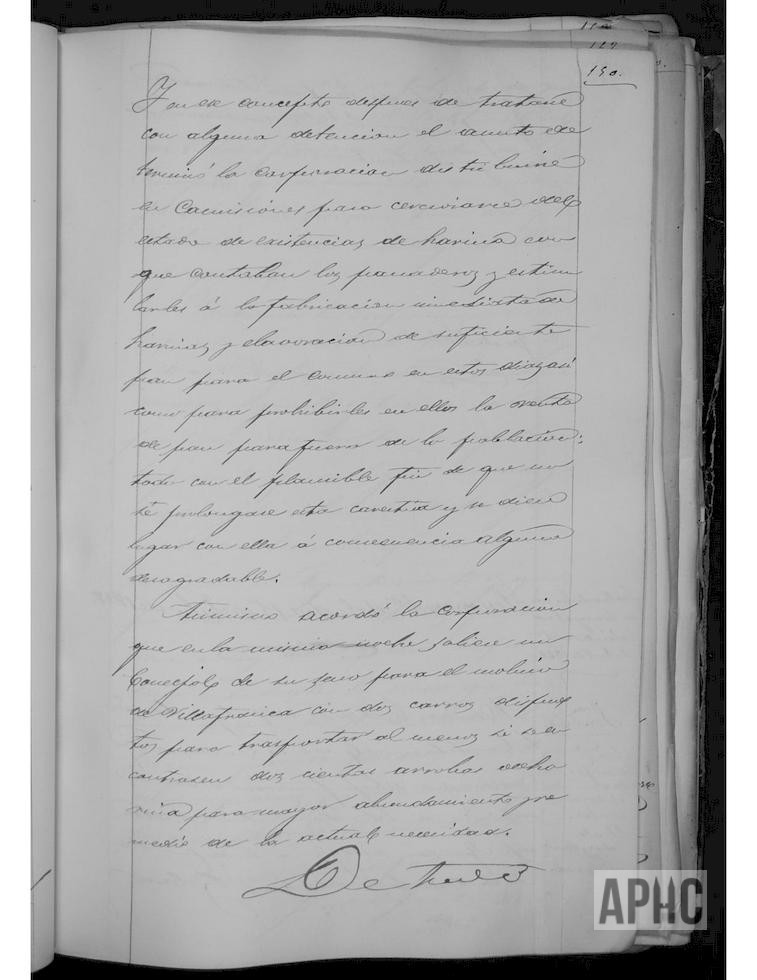 150.
Y en ese concepto despues de tratarse
con alguna detencion el asunto de
terminó la Corporacion distribuirse
en Comisiones para cerciorarse del
estado de existencias de harina con
que contaban los panaderos y estimu
larles á la fabricacion inmediata de
harinas y elavoracion de suficiente
pan para el comun en estos dias, asi
como para prohibirles en ellos la venta
de pan para fuera de la poblacion:
todo con el plausible fin de que no
se prolongase esta carestia y se diera
lugar con ella á consecuencia alguna
desagradable.
Asimismo acordó la Corporacion
que en la misma noche saliese un
Concejal de su seno para el molino
de Villafranca con dos carros dispues
tos para trasportar al menos si se en
contrasen dos cientas arrobas de ha
rina para mayor abundamiento y re
medio de la actual necesidad.
APHC